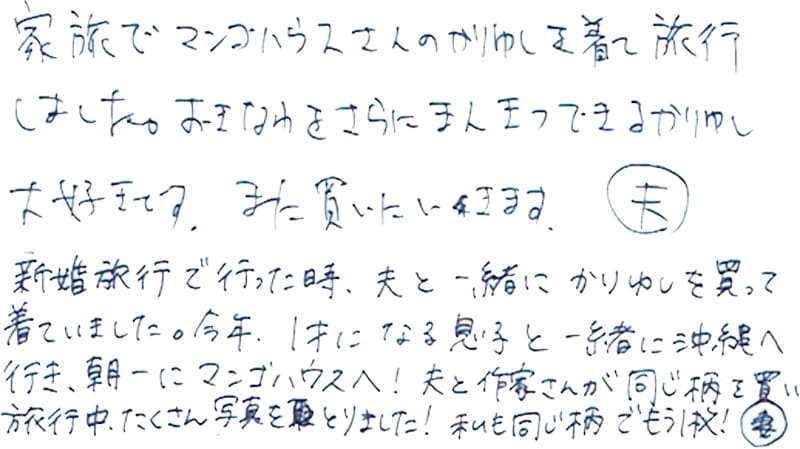 家旅でマンゴハウスさんのかりゆしを着て旅行
しました。おきなわをさらにまんきつできるかりゆし
大好きです。また買いにいきます。 夫
新婚旅行で行った時、夫と一緒にかりゆしを買って
着ていました。今年、1才になる息子と一緒に沖縄へ
行き、朝一にマンゴハウスへ！夫と作家さんが同じ柄を買い
旅行中、たくさん写真をとりました！私も同じ柄でもう1枚！ 妻